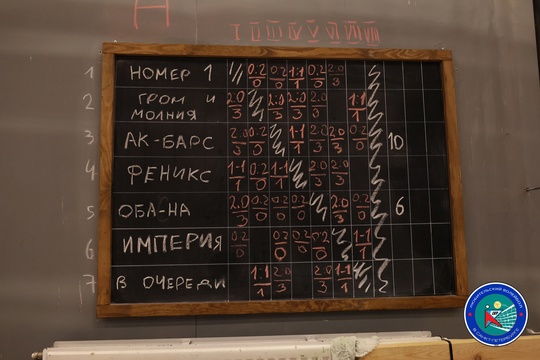 Н
I II III IV V VI VII VIII
1 НОМЕР 1 0:2 0 0:2 0 1:1 1 0:2 0 2:0 3
2 ГРОМ И МОЛНИЯ 2:0 3 2:0 3 2:0 3 2:0 3 1:1 1
3 АК-БАРС 2:0 3 0:2 0 1-1 1 2:0 3 2:0 3 0:2 0 10
4 ФЕНИКС 1-1 1 0:2 0 1-1 1 2:0 3 2:0 3
5 ОБА-НА 2:0 3 0:2 0 0:2 0 0:2 0 2:0 3 0:2 0 6
6 ИМПЕРИЯ 0:2 0 0:2 0 0:2 0 0:2 0 1-1 1
7 В ОЧЕРЕДИ 1:1 1 2:0 3 2:0 3 1-1 1
ЛЮБИТЕЛЬСКИЙ ВОЛЕЙБОЛ
В САНКТ-ПЕТЕРБУРГЕ